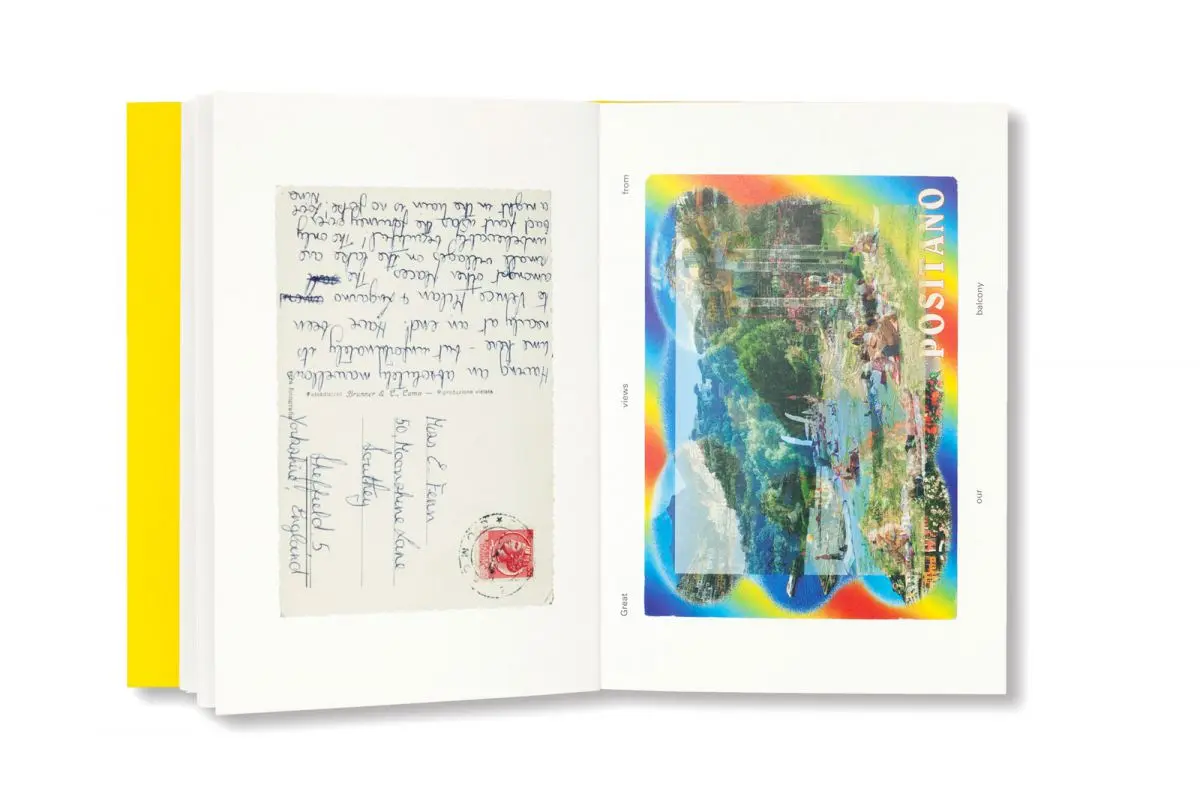 Having an absolutely marvellous
time here - but unfortunately its
nearly at an end! Have been
to Venice Milan & Lugano
amongst other places. The
small villages on the lake are
unbelievably beautiful! The only
bad part was the journey
a night in the train is no joke! Love
Nina
Brunner & C. Como — Riproduzione vietata
Miss E. Fenn
50, Moonshine Lane
Southey
Sheffield 5
Yorkshire, England
Great views from
POSITANO
our balcony